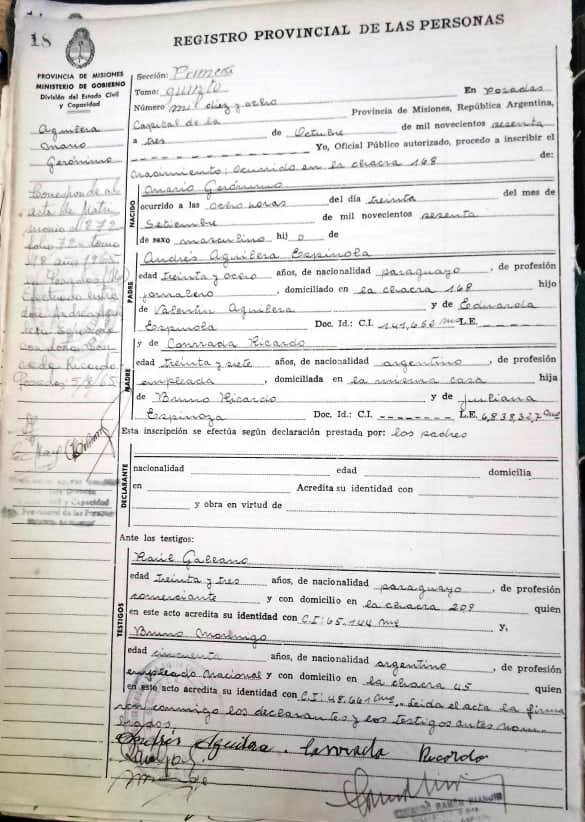 18
REGISTRO PROVINCIAL DE LAS PERSONAS
PROVINCIA DE MISIONES
MINISTERIO DE GOBIERNO
División del Estado Civil
y Capacidad
Aguilera
Mario
Gerónimo
Corresponde al
acta de matri
monio nº 872
folio 72 tomo
18 año 1965
Posadas
Efectuado entre
don Andrés Agui
lera Espinola
con doña Con
rada Ricardo
Posadas 5/8/65
Sección: Primera
Tomo: quinto
Número mil diez y ocho En Posadas
Capital de la Provincia de Misiones, República Argentina,
a tres de Octubre de mil novecientos sesenta
Yo, Oficial Público autorizado, procedo a inscribir el
nacimiento; ocurrido en la chacra 168 de:
NACIDO
Mario Gerónimo
ocurrido a las ocho horas del día treinta del mes de
Setiembre de mil novecientos sesenta
de sexo masculino hij o de
PADRE
Andrés Aguilera Espinola
edad treinta y ocho años, de nacionalidad paraguayo, de profesión
jornalero, domiciliado en la chacra 168 hijo
de Valentín Aguilera y de Eduarda
Espinola Doc. Id.: C.I. 141,652 Mnes L.E.
MADRE
y de Conrada Ricardo
edad treinta y siete años, de nacionalidad argentino, de profesión
empleada, domiciliada en la misma casa hija
de Bruno Ricardo y de Juliana
Espinoza Doc. Id.: C.I. L.E. 6,838,527
Esta inscripción se efectúa según declaración prestada por: los padres
DECLARANTE
nacionalidad edad domicilia
en Acredita su identidad con
y obra en virtud de
Ante los testigos:
TESTIGOS
Raúl Galeano
edad treinta y tres años, de nacionalidad paraguayo, de profesión
comerciante y con domicilio en la chacra 209 quien
en este acto acredita su identidad con C.I: 65.144 Mnes y,
Bruno
edad cincuenta años, de nacionalidad argentino, de profesión
empleado Nacional y con domicilio en la chacra 45 quien
en este acto acredita su identidad con C.I: 48,641 Leída el acta la firma
ron conmigo los declarantes y los testigos antes nom
brados.
Andrés Aguilera. Conrada Ricardo